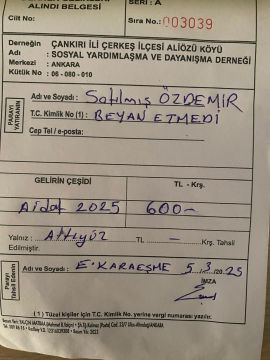 ALINDI BELGESİ
SERİ : A
Cilt No:
Sıra No.: 003039
Derneğin Adı : ÇANKIRI İLİ ÇERKEŞ İLÇESİ ALİÖZÜ KÖYÜ SOSYAL YARDIMLAŞMA VE DAYANIŞMA DERNEĞİ
Merkezi : ANKARA
Kütük No : 06 - 080 - 010
PARAYI YATIRANIN
Adı ve Soyadı : Satılmış ÖZDEMİR
T.C. Kimlik No (1) : BEYAN ETMEDİ
Cep Tel / e-posta:
GELİRİN ÇEŞİDİ TL - Krş.
Aidat 2025 600-
Yalnız : Altıyüz TL — Krş. Tahsil
Edilmiştir.
Parayı Tahsil Edenin
Adı ve Soyadı : E. KARAEŞME 5.3.2025
İMZA
( 1 ) Tüzel kişiler için T.C. Kimlik No. yerine vergi numarası yazılır.